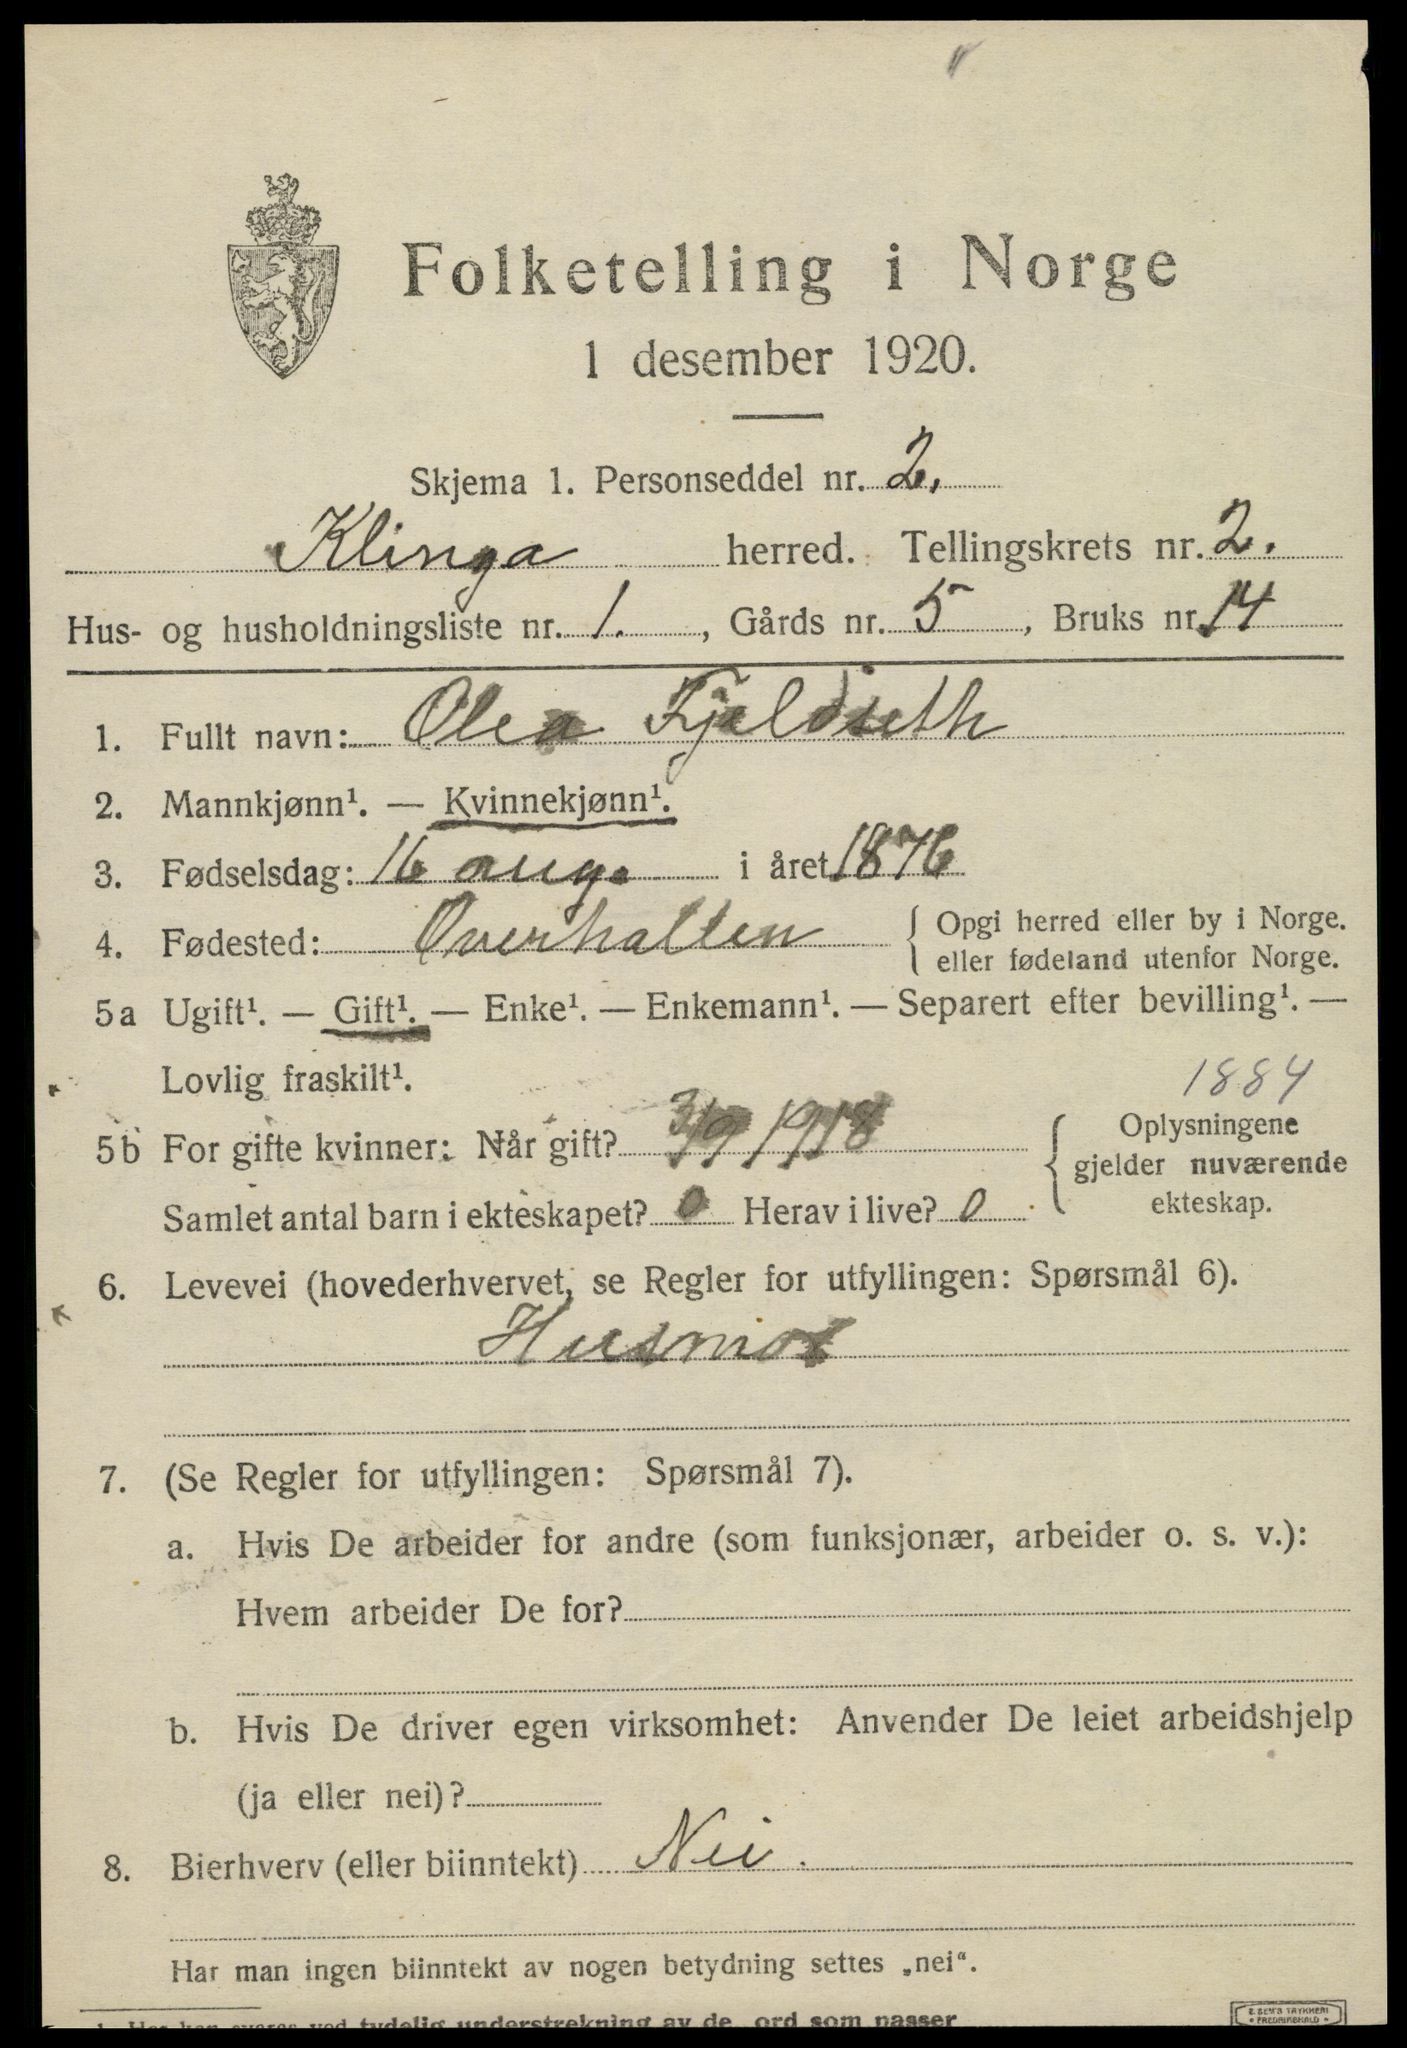 Folketelling i Norge
1 desember 1920.
Skjema 1. Personseddel nr. 2.
Klinga herred. Tellingskrets nr. 2.
Hus- og husholdningsliste nr. 1., Gårds nr. 5, Bruks nr. 14
1. Fullt navn: Olea Fjeldseth
2. Mannkjønn¹. — Kvinnekjønn¹.
3. Fødselsdag: 16 aug. i året 1876
4. Fødested: Overhallen { Opgi herred eller by i Norge.
eller fødeland utenfor Norge.
5a Ugift¹. — Gift¹. — Enke¹. — Enkemann¹. — Separert efter bevilling¹. —
Lovlig fraskilt¹.
1884
5b For gifte kvinner: Når gift? 3/9 1918 { Oplysningene
gjelder nuværende
ekteskap.
Samlet antal barn i ekteskapet? 0 Herav i live? 0
6. Levevei (hovederhvervet, se Regler for utfyllingen: Spørsmål 6).
Husmor
7. (Se Regler for utfyllingen: Spørsmål 7).
a. Hvis De arbeider for andre (som funksjonær, arbeider o. s. v.):
Hvem arbeider De for?
b. Hvis De driver egen virksomhet: Anvender De leiet arbeidshjelp
(ja eller nei)?
8. Bierhverv (eller biinntekt) Nei.
Har man ingen biinntekt av nogen betydning settes „nei“.
1. Her kan svares ved tydelig understrekning av de ord som passer
E. SEM'S TRYKKERI
FREDRIKSHALD